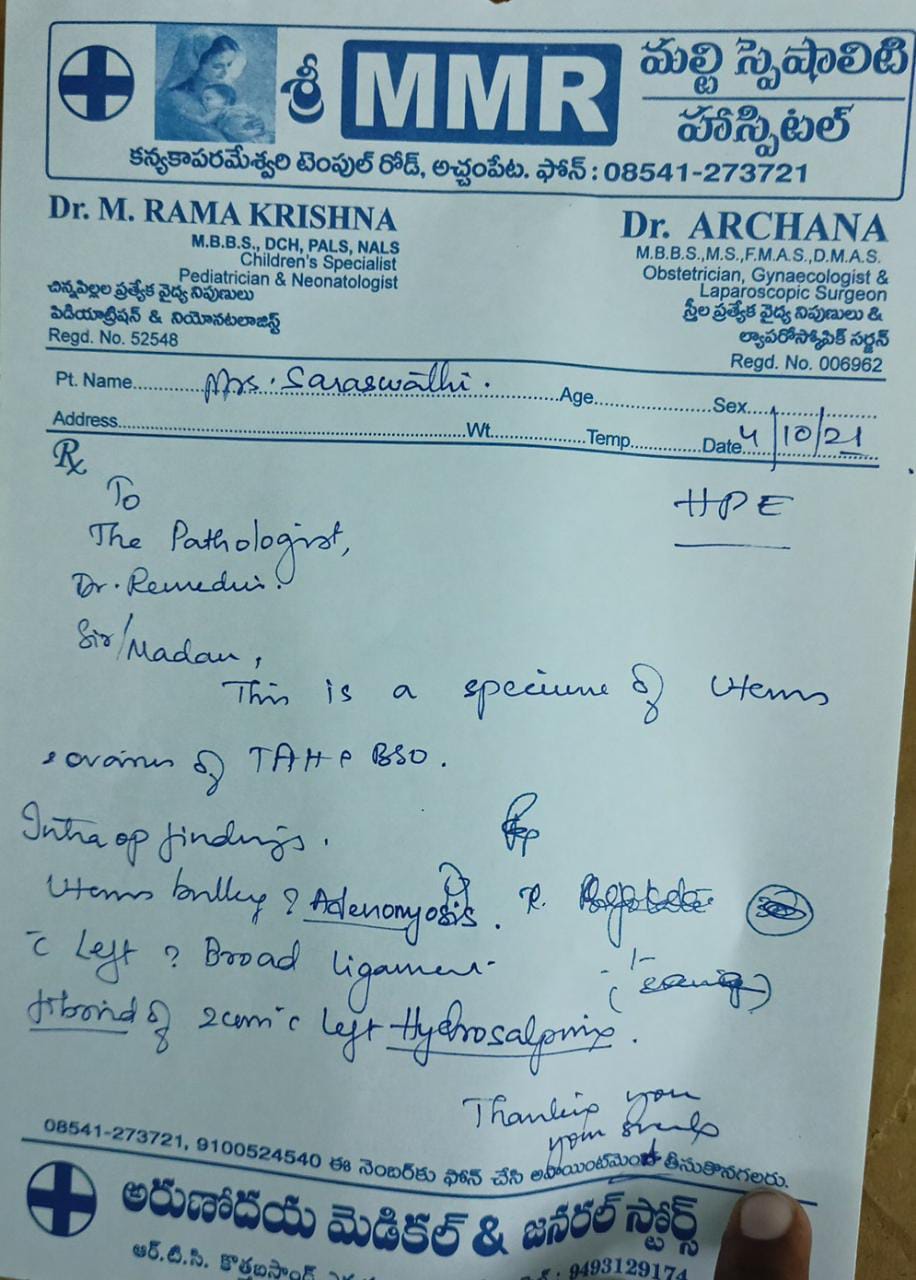 శ్రీ MMR మల్టి స్పెషాలిటి
హాస్పిటల్
కన్యకాపరమేశ్వరి టెంపుల్ రోడ్, అచ్చంపేట. ఫోన్ : 08541-273721
Dr. M. RAMA KRISHNA
M.B.B.S., DCH, PALS, NALS
Children's Specialist
Pediatrician & Neonatologist
చిన్నపిల్లల ప్రత్యేక వైద్య నిపుణులు
పిడియాట్రిషన్ & నియోనటలాజిస్ట్
Regd. No. 52548
Dr. ARCHANA
M.B.B.S.,M.S.,F.M.A.S.,D.M.A.S.
Obstetrician, Gynaecologist &
Laparoscopic Surgeon
స్త్రీల ప్రత్యేక వైద్య నిపుణులు &
ల్యాపరోస్కోపిక్ సర్జన్
Regd. No. 006962
Pt. Name Mrs. Saraswathi. Age Sex
Address Wt. Temp Date 4/10/21
Rx
To
HPE
The Pathologist,
Dr. Remedies.
Sir/Madam,
This is a specimne of Uterus
& ovaries of TAH c BSO.
Intra op findings.
Uterus bulky ? Adenomyosis.
c Left ? Broad ligament
fibroid of 2cm c left Hydrosalpinx.
Thanking you
your
08541-273721, 9100524540 ఈ నెంబర్‌కు ఫోన్ చేసి అపాయింట్‌మెంట్ తీసుకొనగలరు.
అరుణోదయ మెడికల్ & జనరల్ స్టోర్స్
ఆర్.టి.సి. కొత్తబస్టాండ్ 9493129174